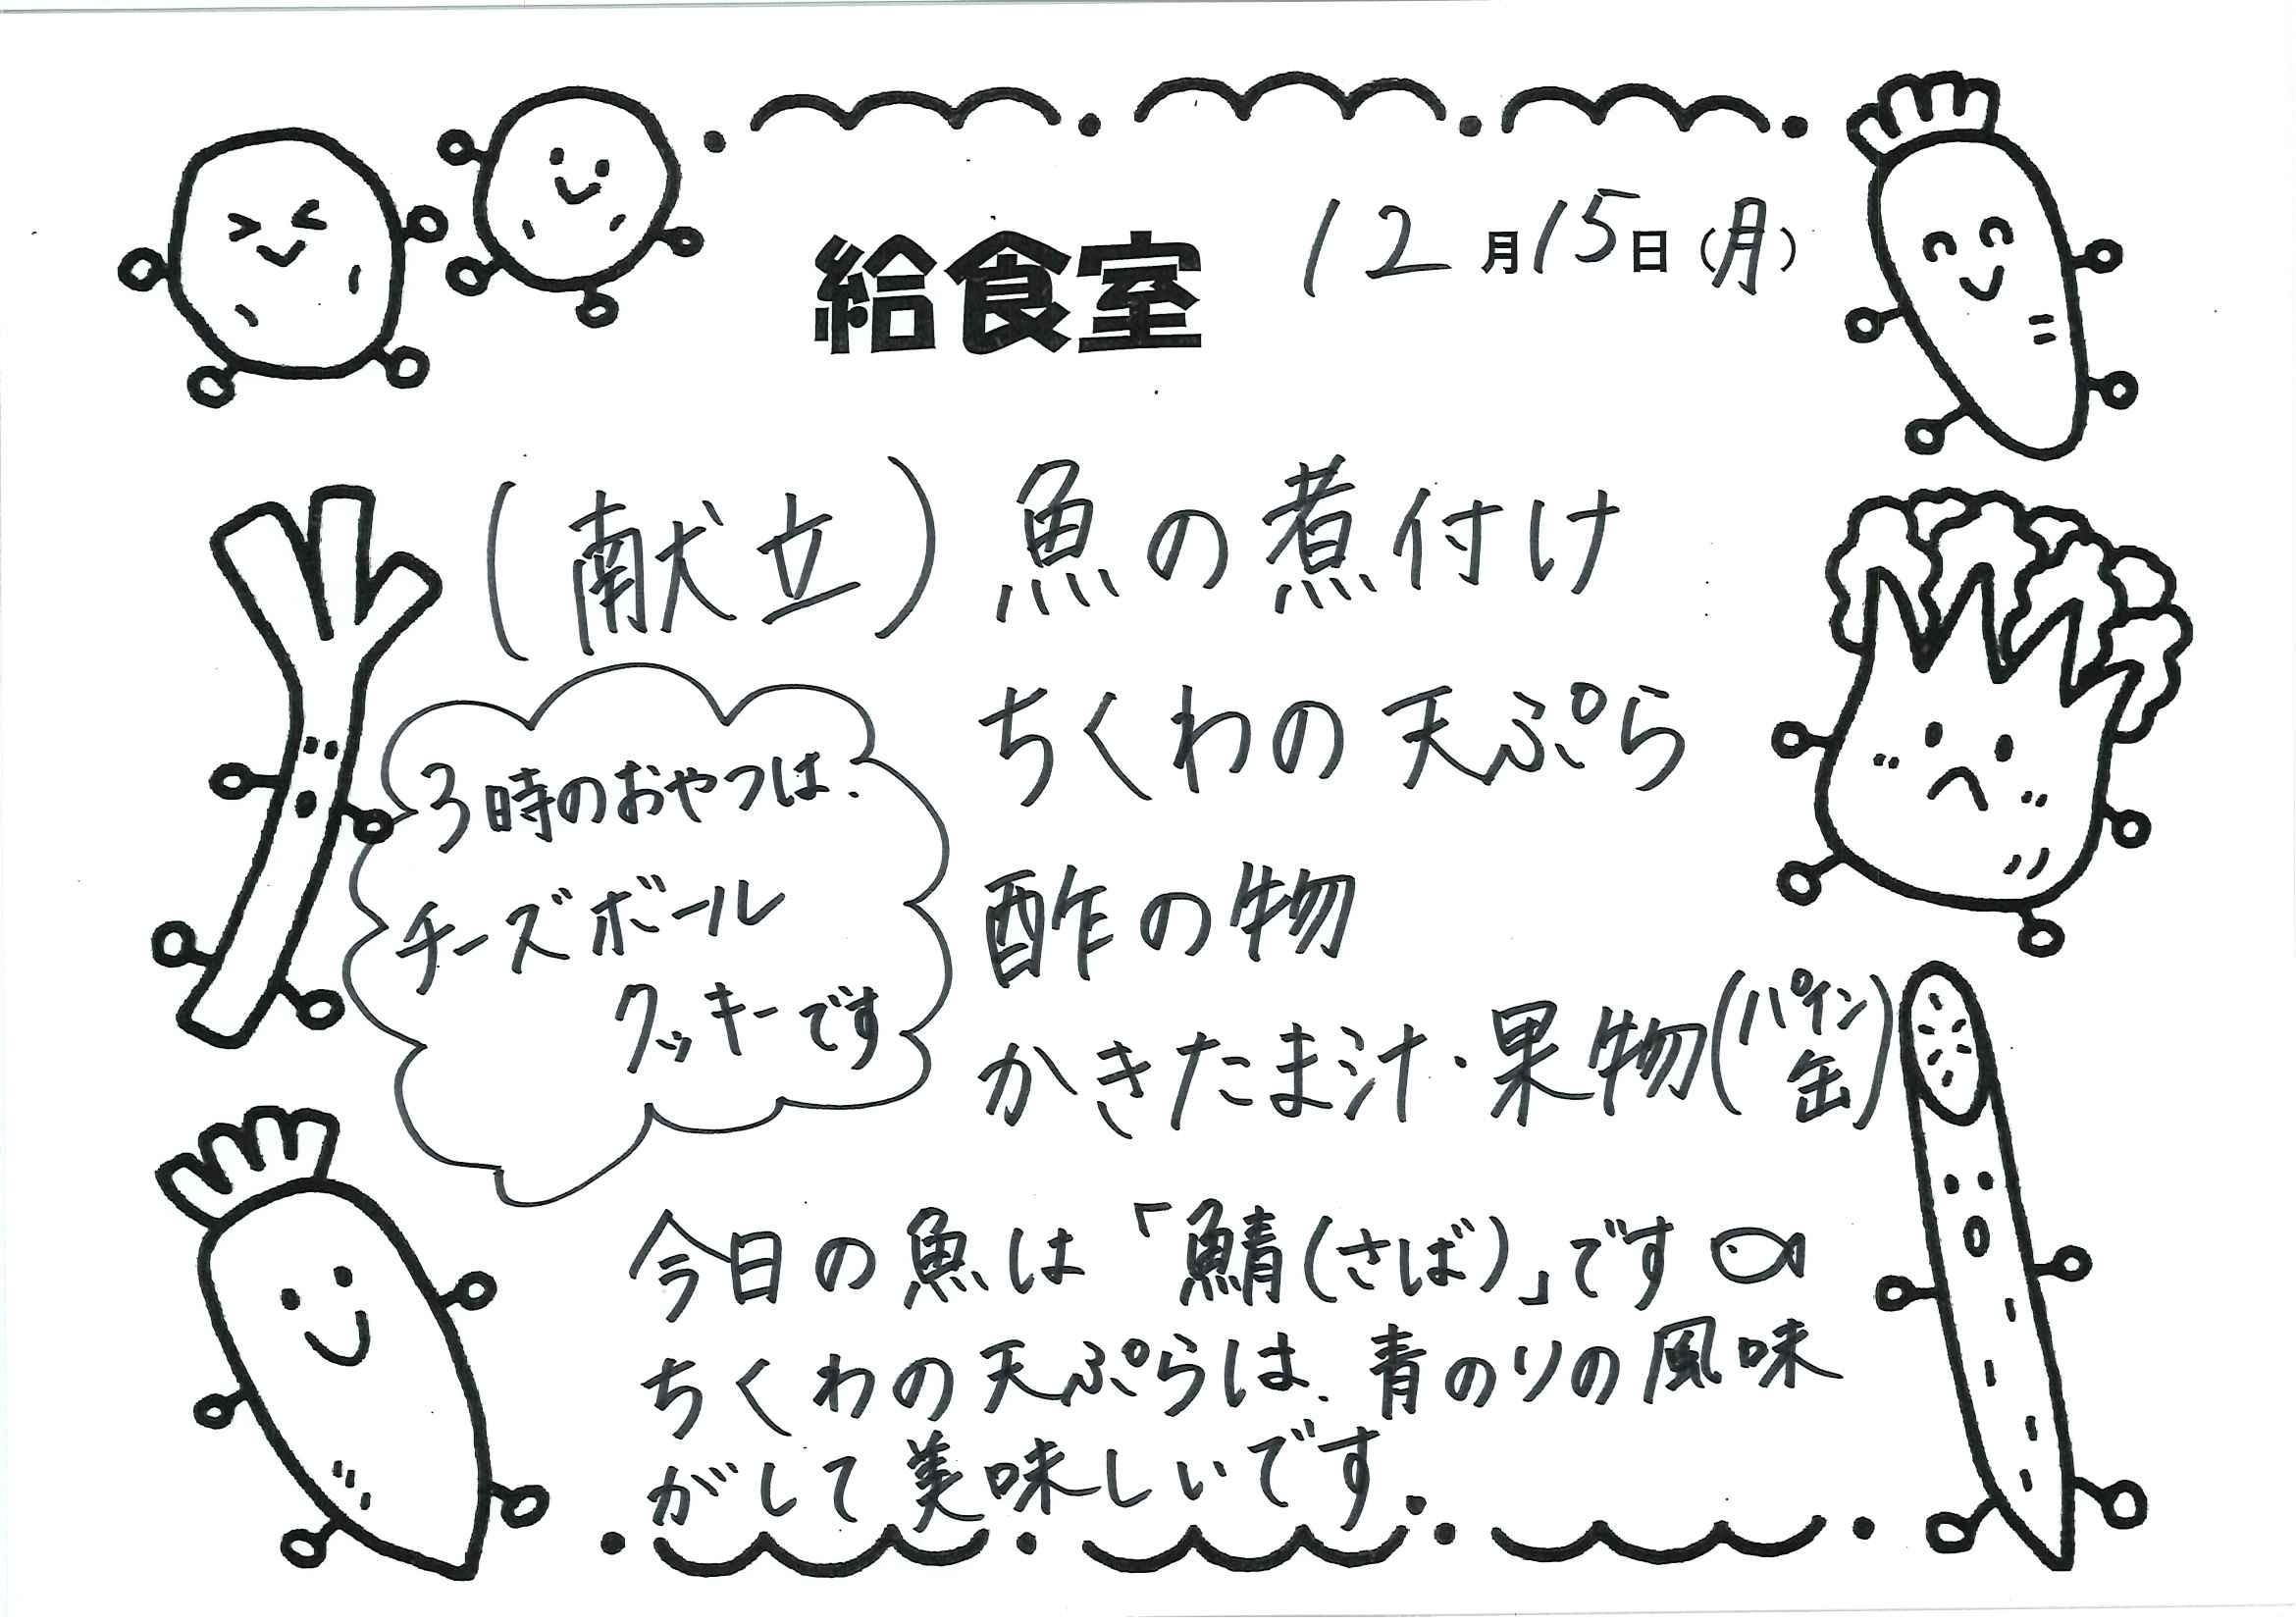 給食室 12月15日(月)
(献立) 魚の煮付け
ちくわの天ぷら
酢の物
かきたま汁・果物(パイン缶)
3時のおやつは、
チーズボール
クッキーです
今日の魚は「鯖(さば)」です
ちくわの天ぷらは、青のりの風味
がして美味しいです.